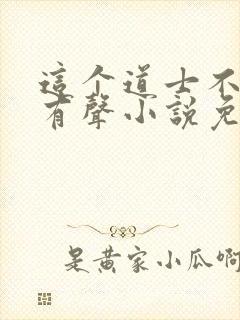 這个道士不
有聲小說免
是黄家小瓜啊